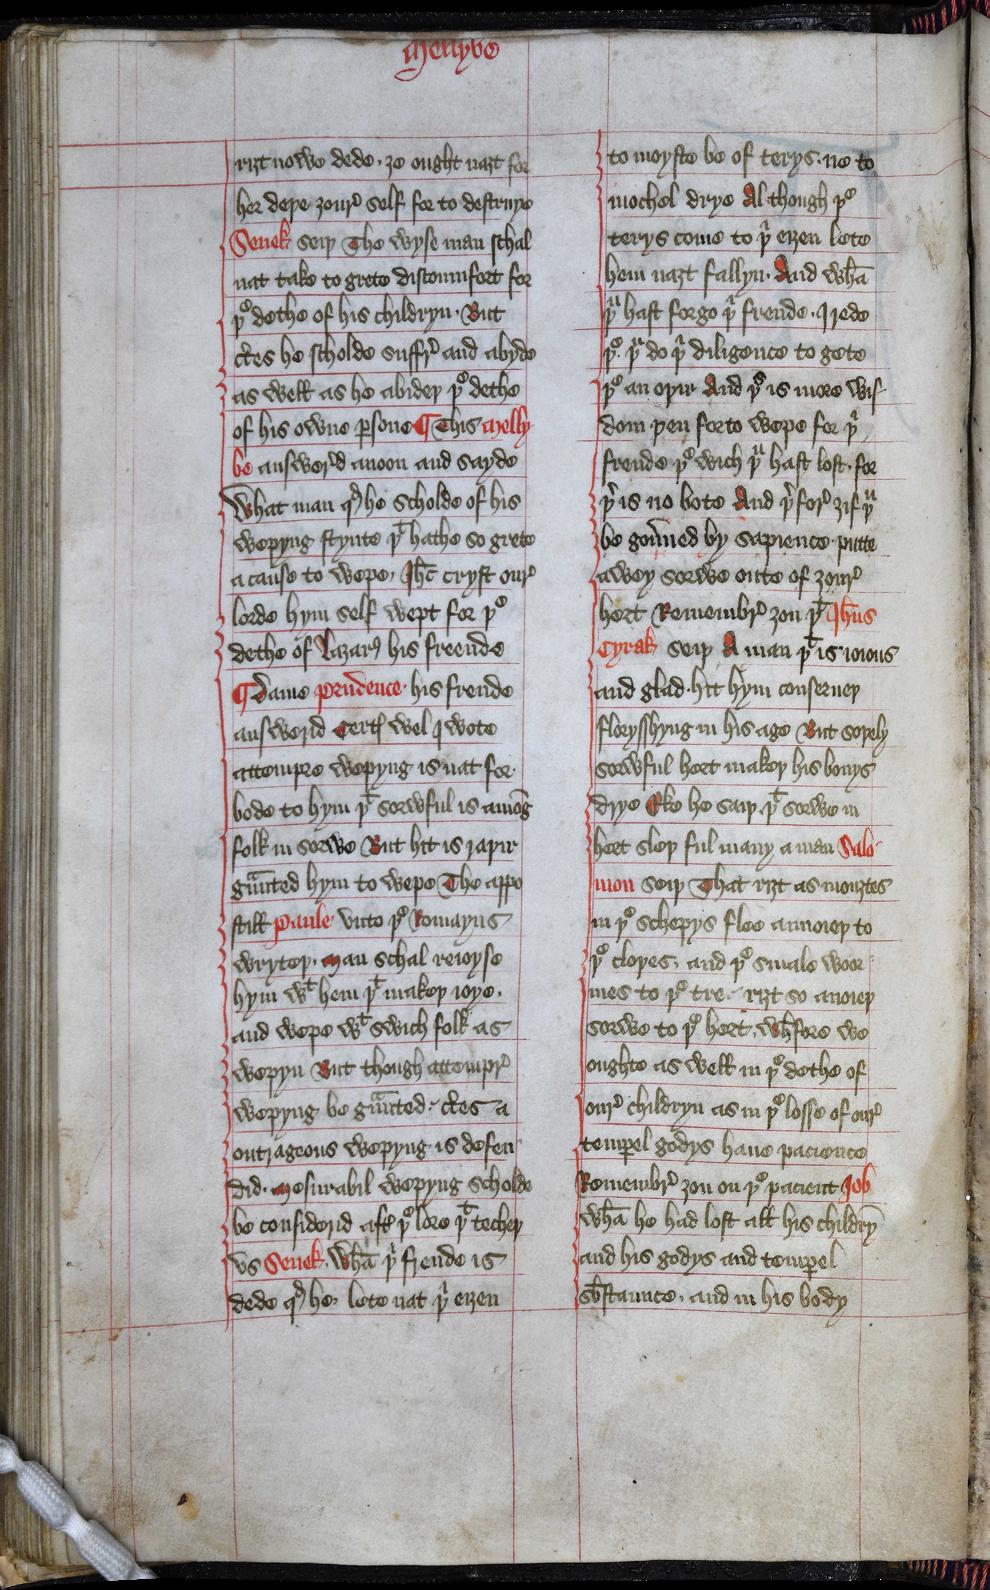 Mellybe
riȝt nowe dede · ȝe ought naȝt for
her deþe ȝourͤ self for to destruye
Senek seiþ The wyse man schal
nat take to grete discoumfort for
þͤ dethe of his childryn · But
c̃tes he scholde suffrͤ and abyde
as well as he abideþ þͤ dethe
of his owne ꝑsone ¶ This Melly
be answerd anoon and sayde
What man qͩ he scholde of his
wepyng stynte þͭ hathe so grete
a cause to wepe · Ih̃c cryst ourͤ
lorde hym self wept for þͤ
dethe of Lazarꝰ his freende
¶ Dame prudence · his frende
answerid Certꝭ wel I wote
attempre wepyng is nat for
bode to hym þͭ sorwful is amõg
folk in sorwe But hit is raþir
gũnted hym to wepe The appo
still Paule vnto þͤ Romayns
wryteþ · Man schal reioyse
hym wͭ hem þͭ makeþ ioye ·
and wepe wͭ swich folk as
wepyn But though attemprͤ
wepyng be gͣunted · c̃tes a
outrageous wepyng is defen
did · Mesurabil wepyng scholde
be considerid aft̃ þͤ lore þͭ techeþ
vs Senek · Whã þͥ frende is
dede qͩ he · lete nat þͥ eiȝen
to moyste be of terys · ne to
mochel drye Al though þͤ
terys come to þͥ eiȝen lete
hem naȝt fallyn · And whã
þͧ hast forgo þͥ frende · I rede
þͤ · þͧ do þͥ diligence to gete
þͤ an oþir And þͥs is more wis
dom þen forto wepe for þͥ
frende þͤ wich þͧ hast lost · for
þͤr is no bote And þͤrforͤ ȝif þͧ
be goũned by sapience · putte
awey sorwe oute of ȝourͤ
hert Remembrͤ ȝou þͭ Ih̃us
Cyrak seiþ A man þͭ is ioious
and glad · hit hym conserueþ
florysshyng in his age But soþely
sorwful hert makeþ his bonys
drye Eke he saiþ · þͭ sorwe in
hert sleþ ful many a man Salo
mon seiþ That riȝt as mouȝtes
in þͤ schepys flee anoieþ to
þͤ cloþes · and þͤ smale woor
mes to þͤ tre · riȝt so anoieþ
sorwe to þͤ hert · wh̃fore we
oughte as well in þͤ dethe of
ourͤ childryn as in þͤ losse of ourͤ
temꝑel godys haue pacience
Remembrͤ ȝou on þͤ pacient Iob
whã he had lost all his childrỹ
and his godys and temꝑel
sb̃staunce · and in his body